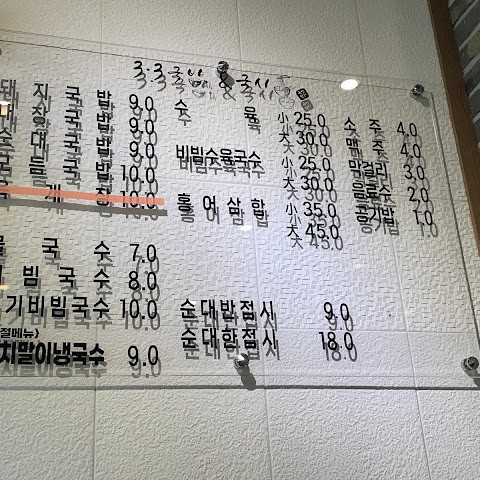 3.3국밥 & 국시
돼지국밥 9.0
9.0
순대국밥 9.0
모듬국밥 10.0
10.0
국수 7.0
비빔국수 8.0
고기비빔국수 10.0
치말이냉국수 9.0
수육 小 25.0
大 30.0
비빔수육국수 小 25.0
大 30.0
홍어삼합 小 35.0
大 45.0
순대반접시 9.0
순대한접시 18.0
소주 4.0
맥주 4.0
막걸리 3.0
음료수 2.0
공기밥 1.0